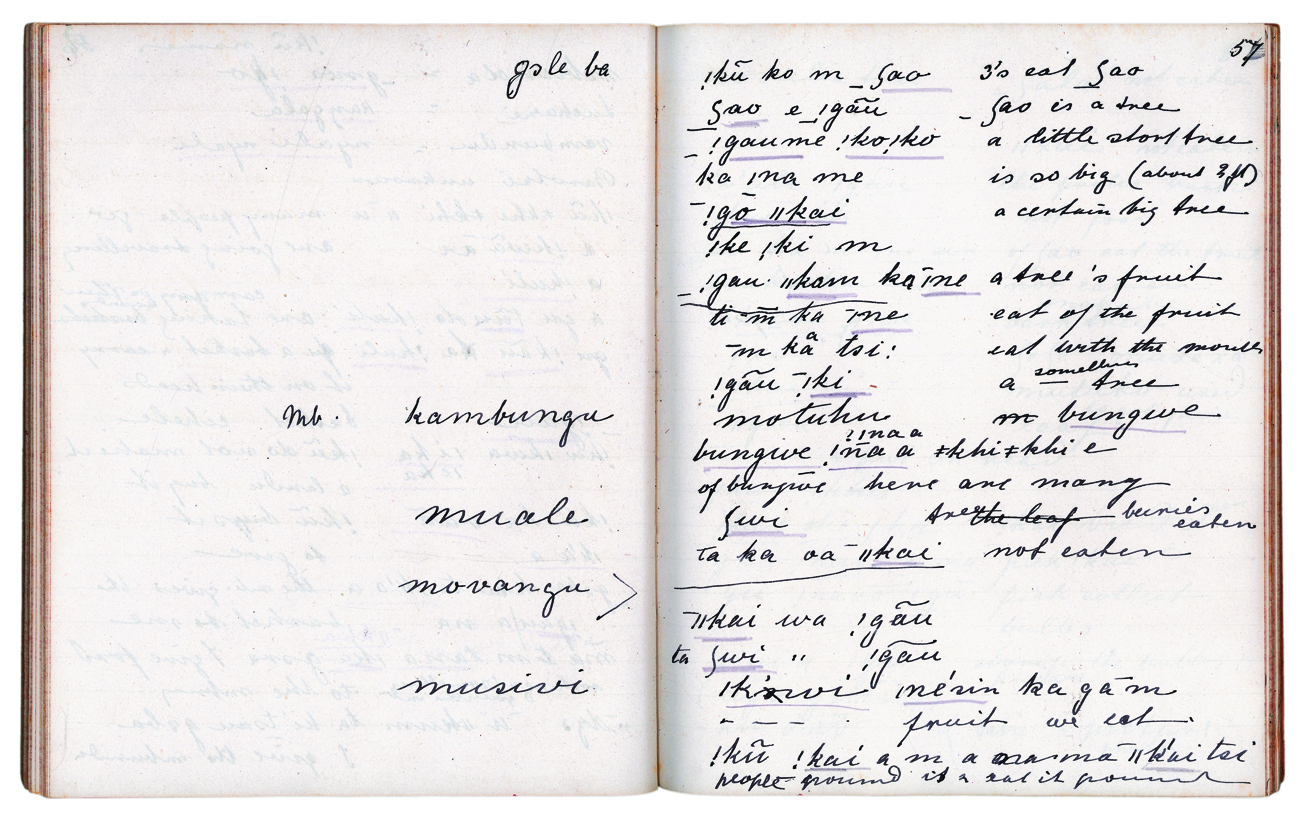 gole ba
Mb. kambungu
muale
movangu
musivi
57
!kū ko m ʃao 3's eat ʃao
ʃao e !gāū ʃao is a tree
!gaume !ko!ko a little short tree
ka ǀna me is so big (about 2 ft)
!gō ǁkai a certain big tree
!ke ǀki m
!gau ǁkam kāǀne a tree's fruit
ti m̄ ka ǀne eat of the fruit
m ka a tsi: eat with the mouth
!gāu !ki a tree
motuhu m bungwe
!ǀnaa
bungwe !naa a ǂkhiǂkhi e
of bungwe here are many
ʃwi tree the leaf buries
eaten
ta ka oa ǁkai not eaten
ǁkai wa !gāu
ta ʃwi " !gāu
ǀne'sin ka gā m
- - - fruit we eat.
!kū !kai a m a ama ma ǁkai tsi
people ground it a eat it ground